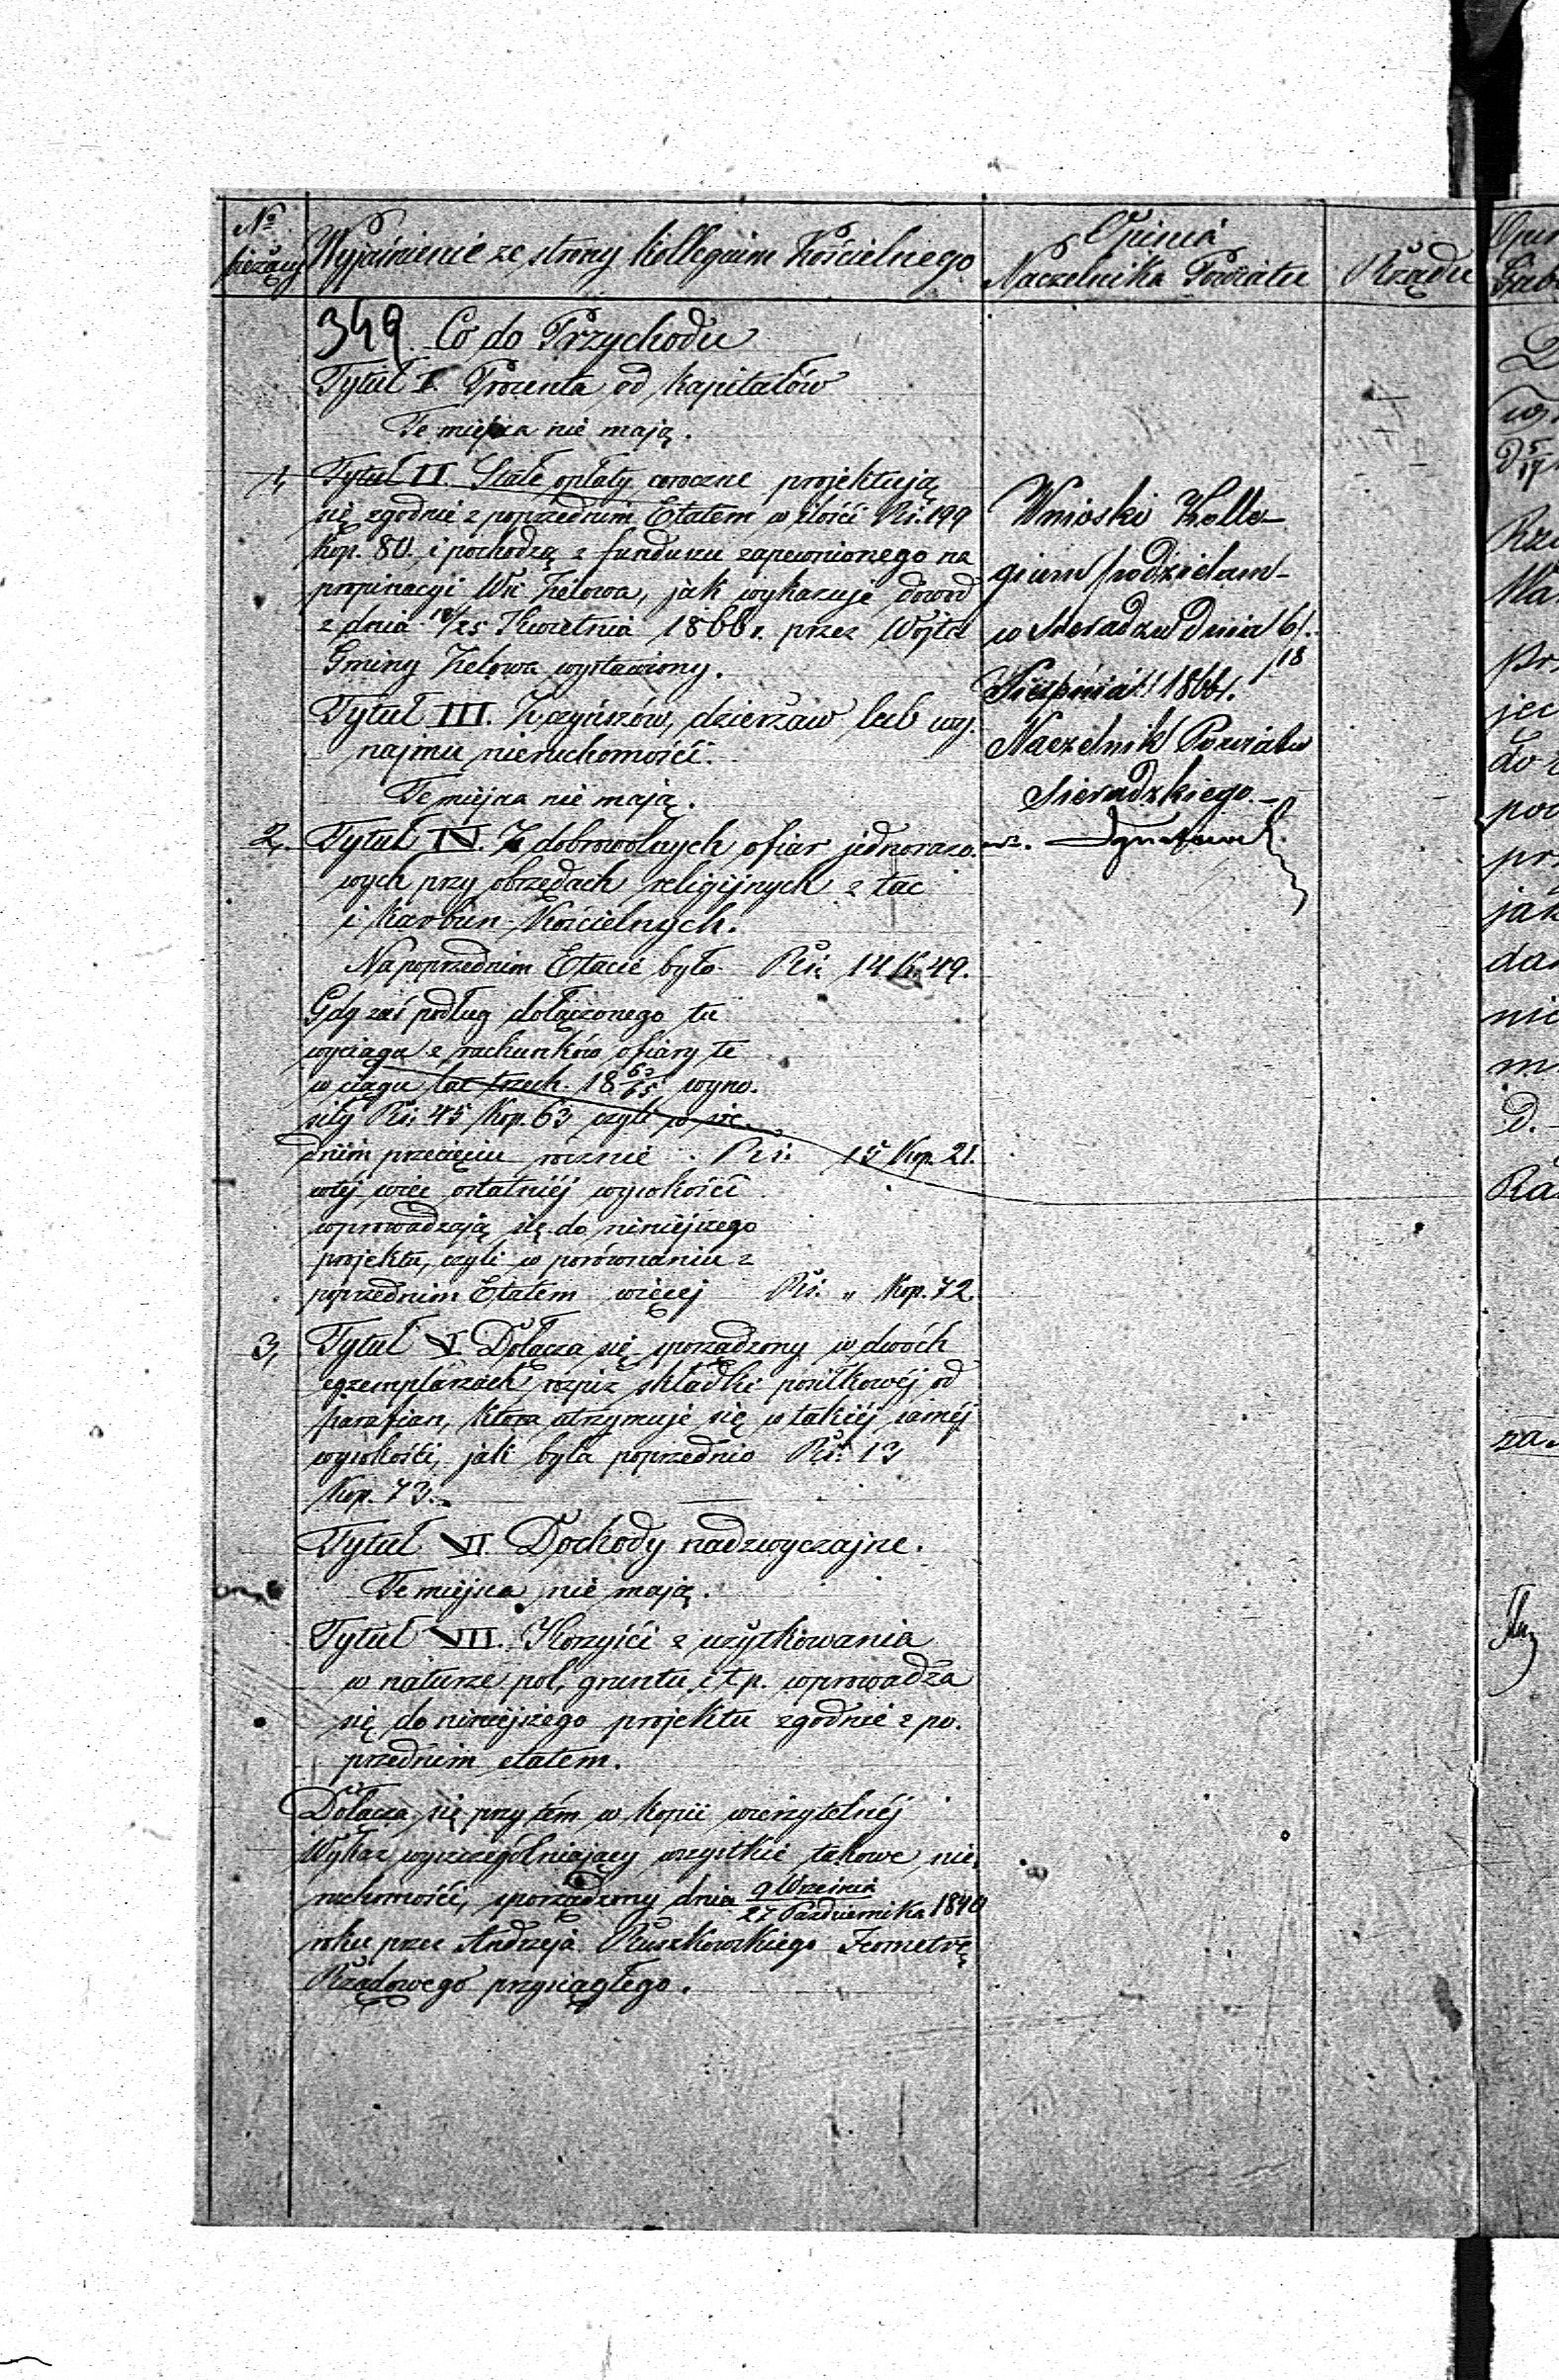 No bieżący
Wyjaśnienie ze strony Kollegium Kościelnego
Opinia
Naczelnika Powiatu
Rządu
349. Co do Przychodu
Tytuł I. Procenta od kapitałów
Te miejsca nie mają.
1, Tytuł II. Stałe opłaty coroczne projektują
się zgodnie z poprzednim Etatem w ilości Rs. 199
Kop. 80. i pochodzą z funduszu zapewnionego na
propinacyi Wsi Zelowa, jak wykazuje dowód
z dnia 13/25 Kwietnia 1866 r. przez Wójta
Gminy Zelowa wystawiony.
Tytuł III. Z czynszów, dzierżaw lub wy-
najmu nieruchomości.
Te miejsca nie mają.
2, Tytuł IV. Z dobrowolnych ofiar jednorazo-
wych przy obrzędach religijnych z tac
i Karbon Kościelnych.
Na poprzednim Etacie było Rs. 14 K. 49.
Gdy zaś podług dołączonego tu
wyciągu z rachunków ofiary te
w ciągu lat trzech 1863/65 wyno-
siły Rs. 45 Kop. 63 czyli w śre-
dnim przecięciu rocznie Rs. 15 Kop. 21.
w tej więc ostatniéj wysokości
wprowadzają się do niniejszego
projektu, czyli w porównaniu z
poprzednim Etatem więcej Rs. „ Kop. 72.
3, Tytuł V. Dołącza się sporządzony w dwóch
egzemplarzach rozpis składki posiłkowéj od
parafian, która utrzymuje się w takiéj saméj
wysokości, jak była poprzednio Rs. 13
Kop. 73.
Tytuł VI. Dochody nadzwyczajne.
Te miejsca nie mają.
Tytuł VII. Korzyści z użytkowania
w naturze pol, gruntu, i t p. wprowadza
się do niniejszego projektu zgodnie z po-
przednim etatem.
Dołącza się przytém w kopii wierzytelnéj
Wykaz wyszczególniający wszystkie takowe nie-
ruchomości, sporządzony dnia 9 Września / 27 Października 1840
roku przez Andrzeja Ruszkowskiego Jeometrę
Rządowego przysięgłego.
Wnioski Kolle-
gium podzielam
w Sieradzu dnia 6/18
Sierpnia 1866 r.
Naczelnik Powiatu
Sieradzkiego.